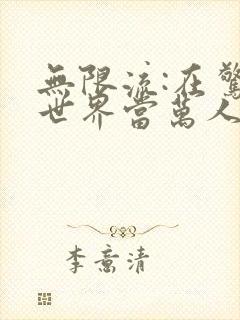 無限流:在驚
世界當萬人
李意清